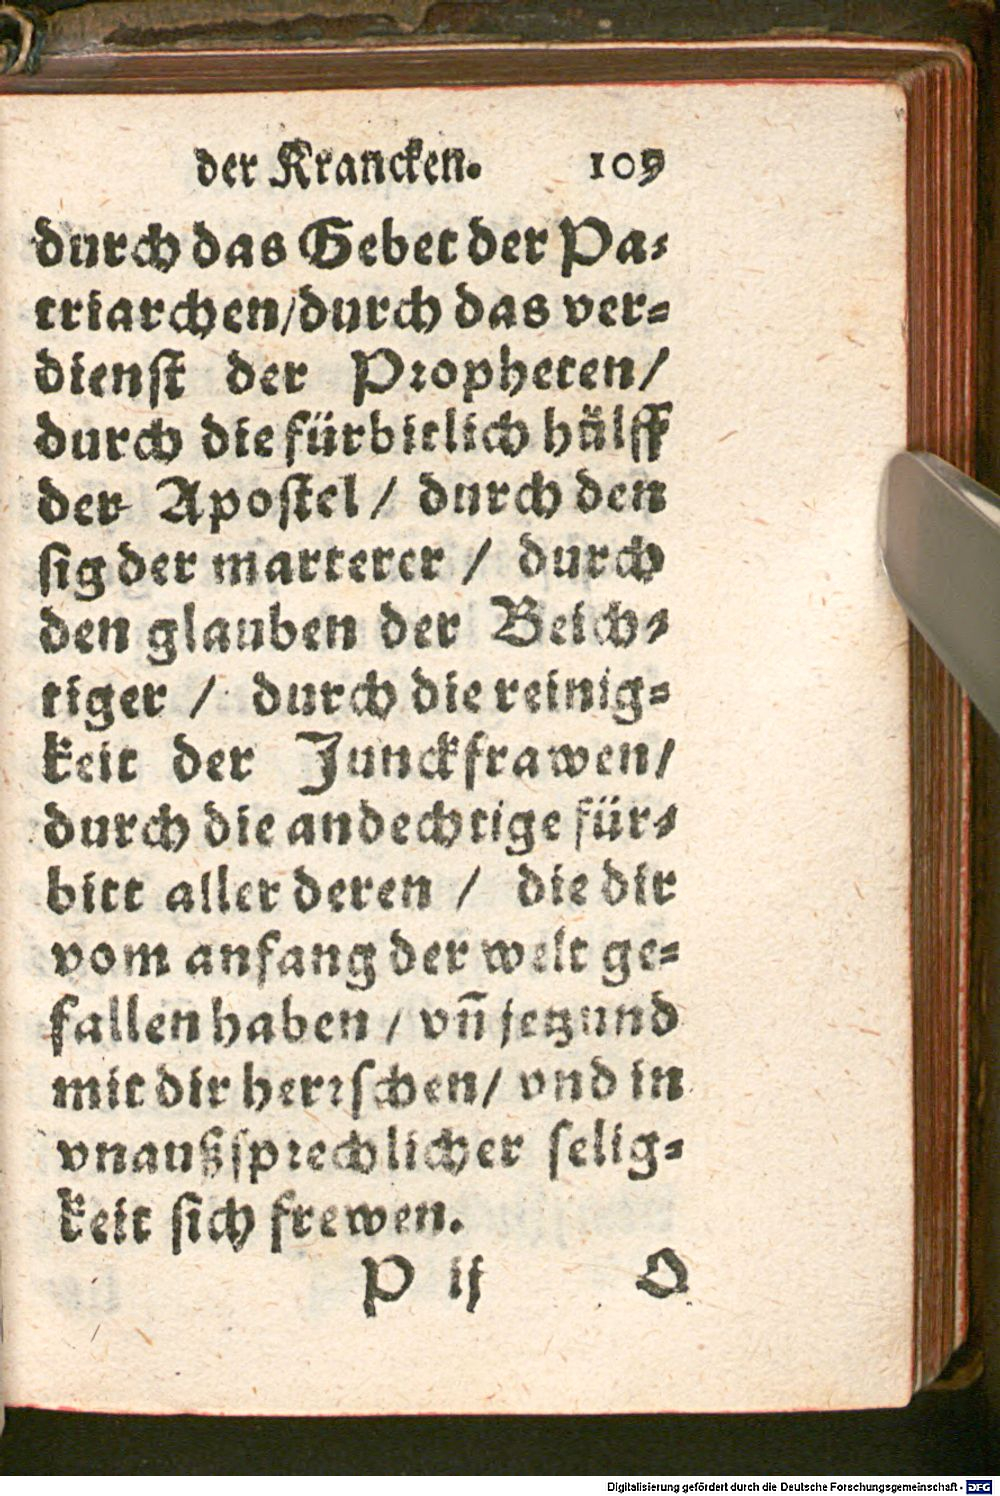 der Krancken. 109
durch das Gebet der Pa⸗
triarchen/durch das ver⸗
dienst der Propheten/
durch die fürbitlich hülff
der Apostel / durch den
sig der marterer / durch
den glauben der Beich⸗
tiger / durch die reinig⸗
keit der Junckfrawen/
durch die andechtige für⸗
bitt aller deren / die dir
vom anfang der welt ge⸗
fallen haben / vn̄ jetzund
mit dir herrschen/ vnd in
vnaußsprechlicher selig⸗
keit sich frewen.
P ij O
Digitalisierung gefördert durch die Deutsche Forschungsgemeinschaft - DFG